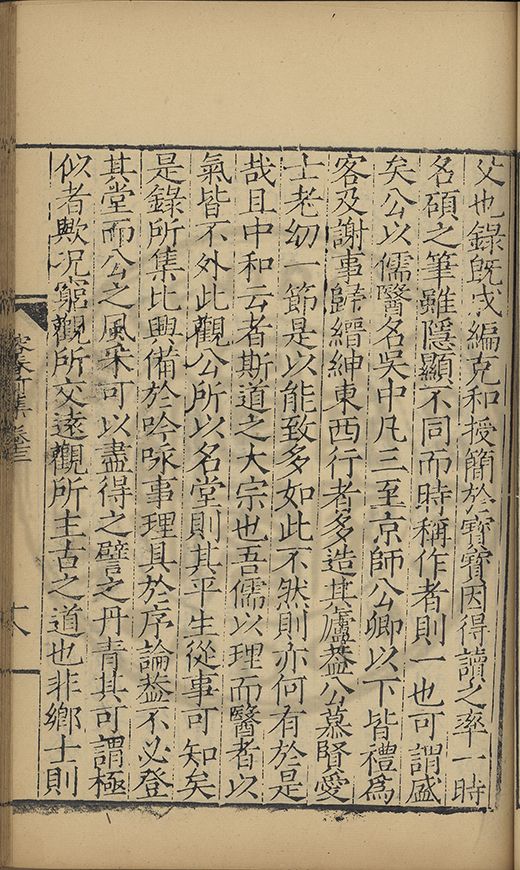 父也錄既成編克和授簡於寶寶因得讀之率一時
名碩之筆雖隱顯不同而時稱作者則一也可謂盛
矣公以儒醫名吳中凡三至京師公卿以下皆禮爲
客及謝事歸縉紳東西行者多造其廬葢公慕賢愛
士老幼一節是以能致多如此不然則亦何有於是
哉且中和云者斯道之大宗也吾儒以理而醫者以
氣皆不外此觀公所以名堂則其平生從事可知矣
是錄所集比興備於吟咏事理具於序論葢不必登
其堂而公之風采可以盡得之譬之丹青其可謂極
似者歟况窮觀所交遠觀所主古之道也非鄉士則
家集 卷三
六